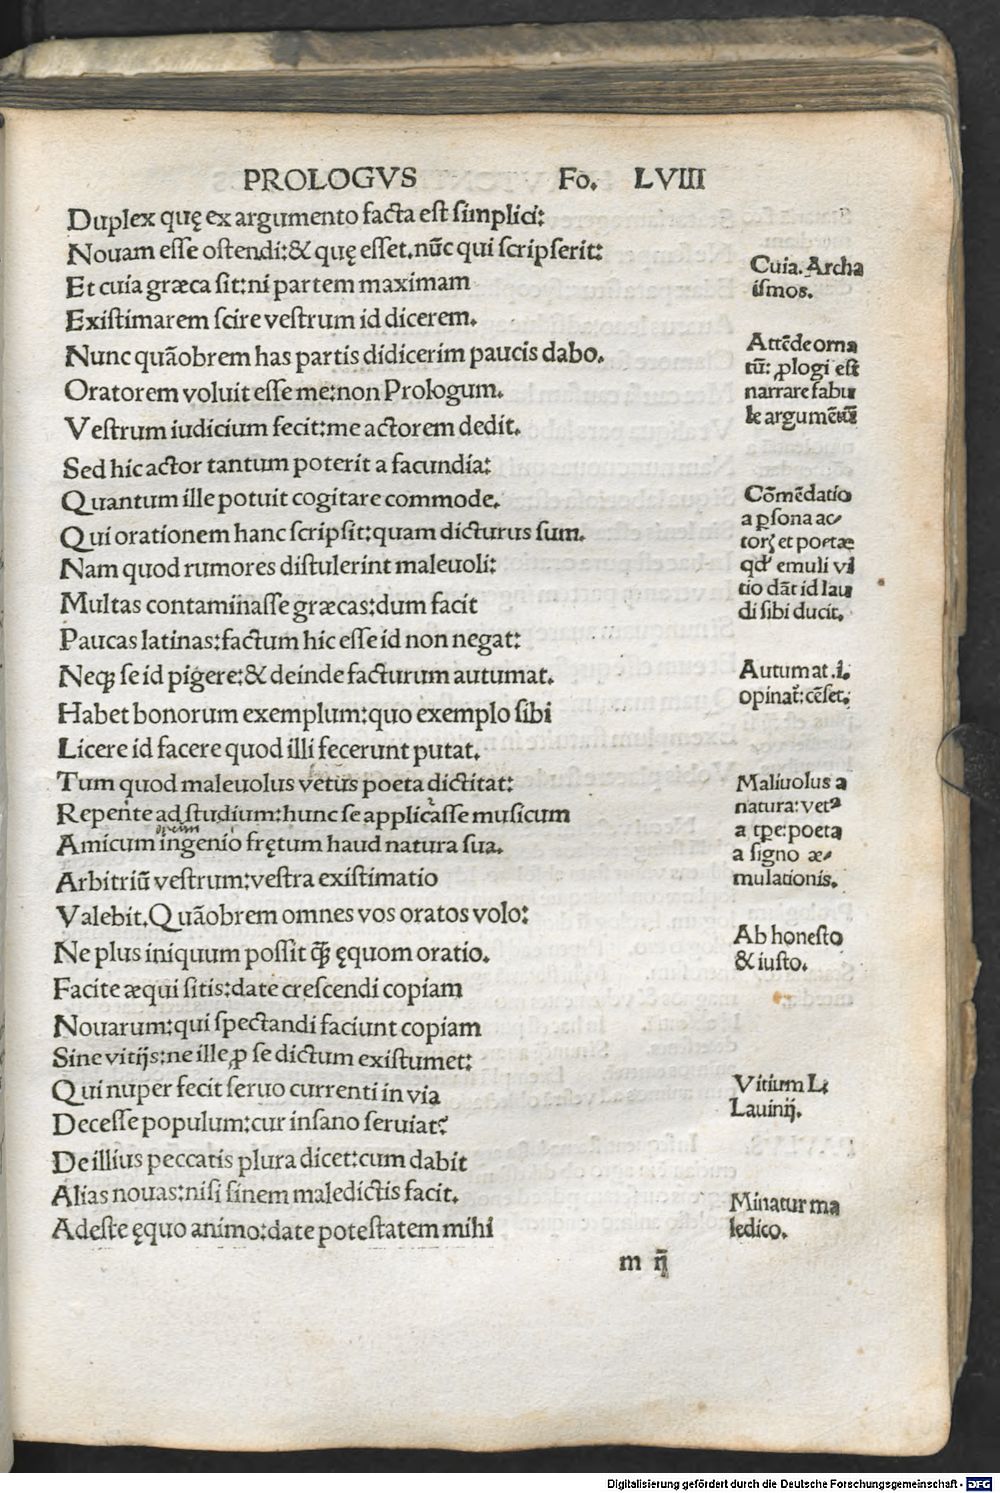 PROLOGVS Fo. LVIII
Duplex quę ex argumento facta est simplici:
Nouam esse ostendi:& quę esset.nūc qui scripserit:
Et cuia græca sit:ni partem maximam
Existimarem scire vestrum id dicerem.
Nunc quāobrem has partis didicerim paucis dabo.
Oratorem voluit esse me:non Prologum.
Vestrum iudicium fecit:me actorem dedit.
Sed hic actor tantum poterit a facundia:
Quantum ille potuit cogitare commode.
Qui orationem hanc scripsit:quam dicturus sum.
Nam quod rumores distulerint maleuoli:
Multas contaminasse græcas:dum facit
Paucas latinas:factum hic esse id non negat:
Neqꝫ se id pigere:& deinde facturum autumat.
Habet bonorum exemplum:quo exemplo sibi
Licere id facere quod illi fecerunt putat.
Tum quod maleuolus vetus poeta dictitat:
Repente ad studium:hunc se applicasse musicum
Amicum ingenio frętum haud natura sua.
Arbitriū vestrum:vestra existimatio
Valebit.Quāobrem omnes vos oratos volo:
Ne plus iniquum possit q̄ꝫ ęquom oratio.
Facite æqui sitis:date crescendi copiam
Nouarum:qui spectandi faciunt copiam
Sine vitijs:ne ille ꝓ se dictum existumet:
Qui nuper fecit seruo currenti in via
Decesse populum:cur insano seruiat?
De illius peccatis plura dicet:cum dabit
Alias nouas:nisi finem maledictis facit.
Adeste ęquo animo:date potestatem mihi
m ij
Cuia. Archa
ismos.
Attēde orna
tū: ꝓlogi est
narrare fabu
læ argumētū
Cōmēdatio
a ꝑsona ac-
torꝭ et poetæ
qd' emuli vi
tio dāt id lau
di sibi ducit.
Autumat .i.
opinat̄: cēset.
Maliuolus a
natura: vetꝰ
a tꝑe: poeta
a signo æ-
mulationis.
Ab honesto
& iusto.
Vitium L.
Lauinij.
Minatur ma
ledico.
Digitalisierung gefördert durch die Deutsche Forschungsgemeinschaft - DFG